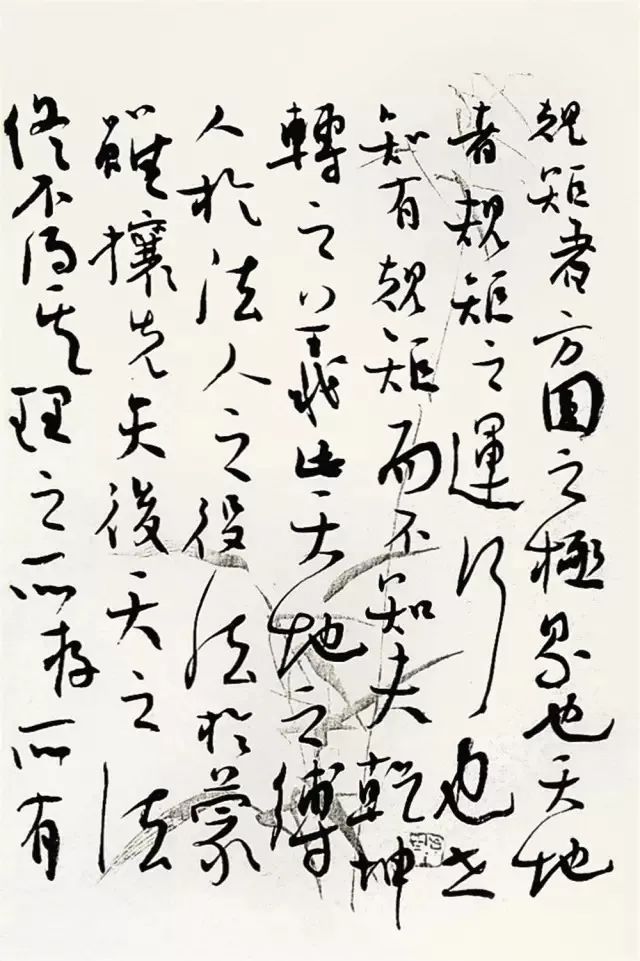 規矩者方圓之極也天地
者規矩之運行也世
知有規矩而不知夫乾坤
轉之義此天地之縛
人於法人之役法於蒙
雖攘先天後天之法
終不得其理之所存所有